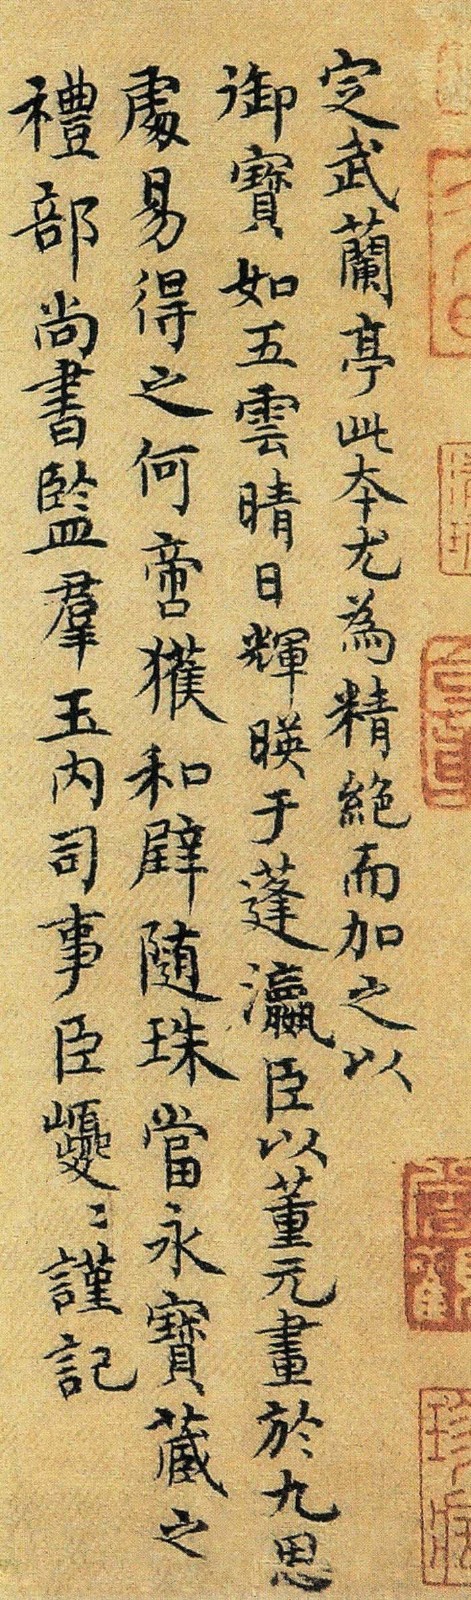 定武蘭亭此本尤為精絕而加之以
御寶如五雲晴日輝暎于蓬瀛臣以董元畫於九思
處易得之何啻獲和璧隨珠當永寶藏之
禮部尚書監羣玉內司事臣巙〻謹記